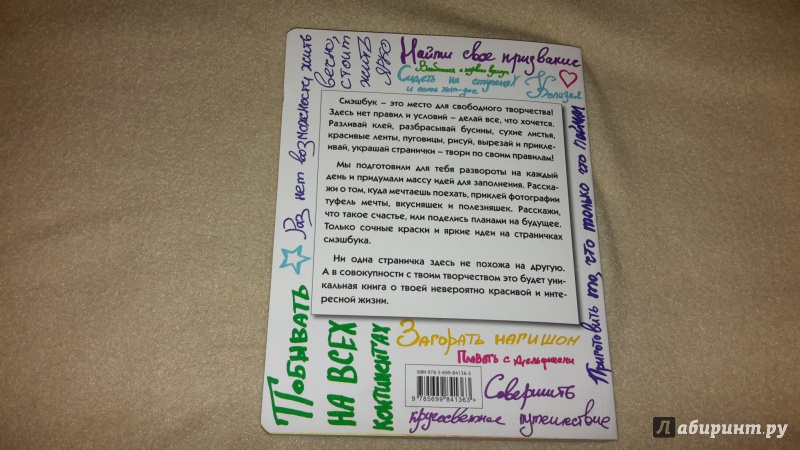 Раз нет возможности жить
вечно,
стоит
жить
ярко
Найти свое призвание
Влюбиться с первого взгляда
Сидеть на ступенях
Колизея
и есть хот-дог
Смэшбук – это место для свободного творчества!
Здесь нет правил и условий – делай все, что хочется.
Разливай клей, разбрасывай бусины, сухие листья,
красивые ленты, пуговицы, рисуй, вырезай и прикле-
ивай, украшай странички – твори по своим правилам!
Мы подготовили для тебя развороты на каждый
день и придумали массу идей для заполнения. Расска-
жи о том, куда мечтаешь поехать, приклей фотографии
туфель мечты, вкусняшек и полезняшек. Расскажи,
что такое счастье, или поделись планами на будущее.
Только сочные краски и яркие идеи на страничках
смэшбука.
Ни одна страничка здесь не похожа на другую.
А в совокупности с твоим творчеством это будет уни-
кальная книга о твоей невероятно красивой и инте-
ресной жизни.
Приготовить то, что только что поймал
Побывать
на всех
континентах
Загорать нагишом
Плавать с дельфинами
ISBN 978-5-699-84136-3
9 785699 841363 >
Совершить
кругосветное путешествие
Лабиринт.ру